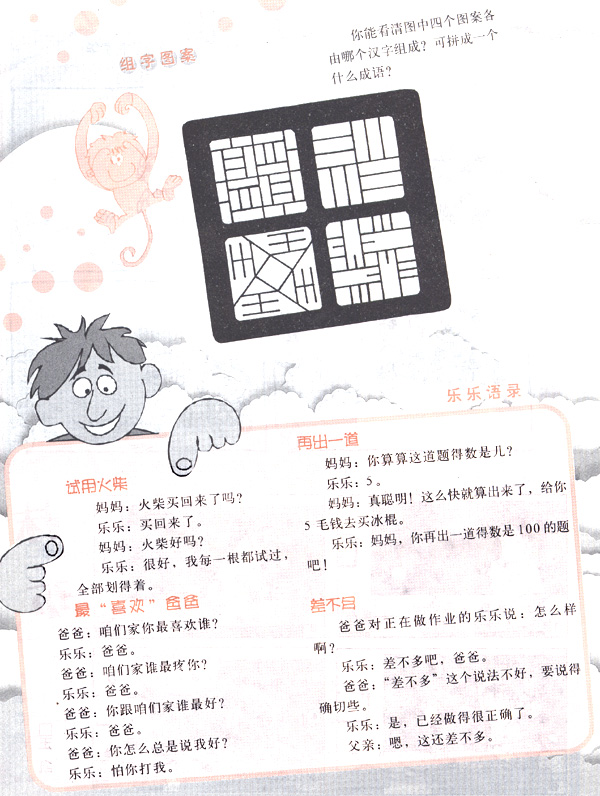 组字图案
你能看清图中四个图案各
由哪个汉字组成？可拼成一个
什么成语？
乐乐语录
试用火柴
妈妈：火柴买回来了吗？
乐乐：买回来了。
妈妈：火柴好吗？
乐乐：很好，我每一根都试过，
全部划得着。
最“喜欢”爸爸
爸爸：咱们家你最喜欢谁？
乐乐：爸爸。
爸爸：咱们家谁最疼你？
乐乐：爸爸。
爸爸：你跟咱们家谁最好？
乐乐：爸爸。
爸爸：你怎么总是说我好？
乐乐：怕你打我。
再出一道
妈妈：你算算这道题得数是几？
乐乐：5。
妈妈：真聪明！这么快就算出来了，给你
5毛钱去买冰棍。
乐乐：妈妈，你再出一道得数是100的题
吧！
差不多
爸爸对正在做作业的乐乐说：怎么样
啊？
乐乐：差不多吧，爸爸。
爸爸：“差不多”这个说法不好，要说得
确切些。
乐乐：是，已经做得很正确了。
父亲：嗯，这还差不多。